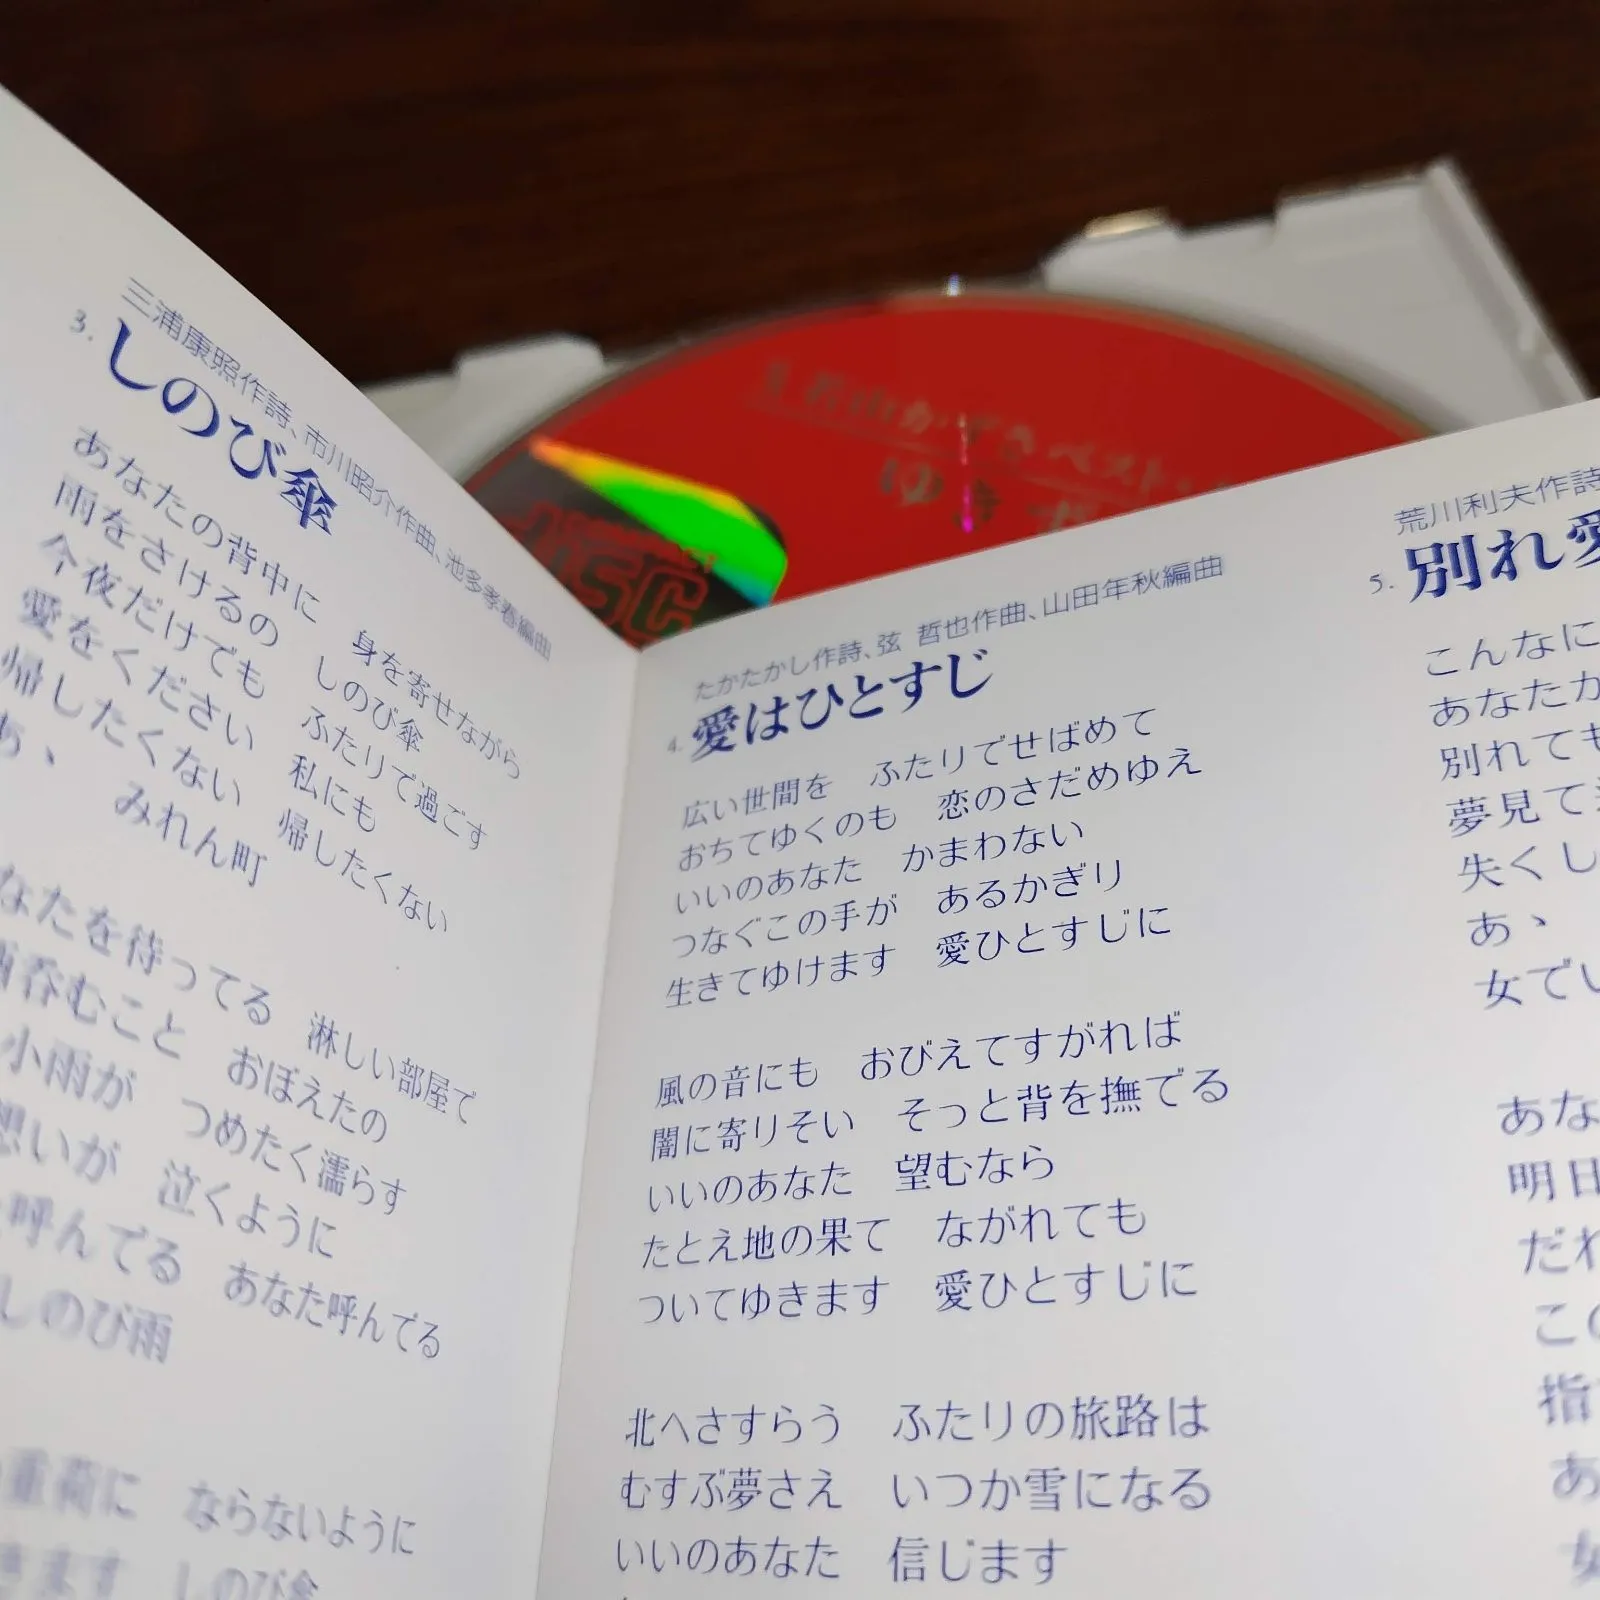 三浦康照作詩、市川昭介作曲、池多孝春編曲
3. しのび傘
あなたの背中に 身を寄せながら
雨をさけるの しのび傘
今夜だけでも ふたりで過ごす
愛をください 私にも
帰したくない 帰したくない
みれん町
なたを待ってる 淋しい部屋で
呑むこと おぼえたの
小雨が つめたく濡らす
想いが 泣くように
呼んでる あなた呼んでる
しのび雨
重荷に ならないように
きます しのび傘
たかたかし作詩、弦 哲也作曲、山田年秋編曲
4. 愛はひとすじ
広い世間を ふたりでせばめて
おちてゆくのも 恋のさだめゆえ
いいのあなた かまわない
つなぐこの手が あるかぎり
生きてゆけます 愛ひとすじに
風の音にも おびえてすがれば
闇に寄りそい そっと背を撫でる
いいのあなた 望むなら
たとえ地の果て ながれても
ついてゆきます 愛ひとすじに
北へさすらう ふたりの旅路は
むすぶ夢さえ いつか雪になる
いいのあなた 信じます
荒川利夫作詩
5. 別れ愛
こんなに
あなたが
別れても
夢見て
失くし
あゝ
女でい
あな
明日
だれ
この
指
あ
女
若山かずさベスト
ゆき
DISC